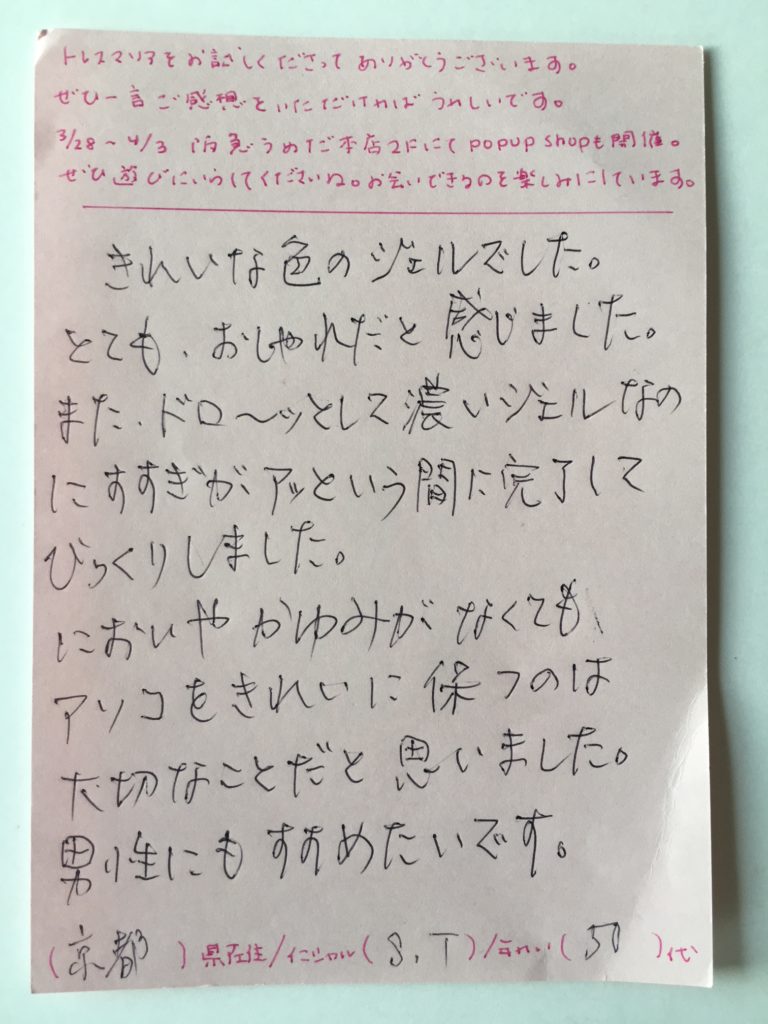 トレスマリアをお試しくださって ありがとうございます。
ぜひ一言ご感想をいただければ うれしいです。
3/28〜4/3 阪急うめだ本店2Fにて popup shopも開催。
ぜひ遊びにいらしてくださいね。お会いできるのを楽しみにしています。
きれいな色のジェルでした。
とても、おしゃれだと感じました。
また、ドロ〜ッとして濃いジェルなの
にすすぎが、アッという間に完了して
びっくりしました。
においやかゆみがなくても、
アソコをきれいに保つのは
大切なことだと思いました。
男性にもすすめたいです。
(京都)県在住/イニシャル(S.T)/年れい(50)代